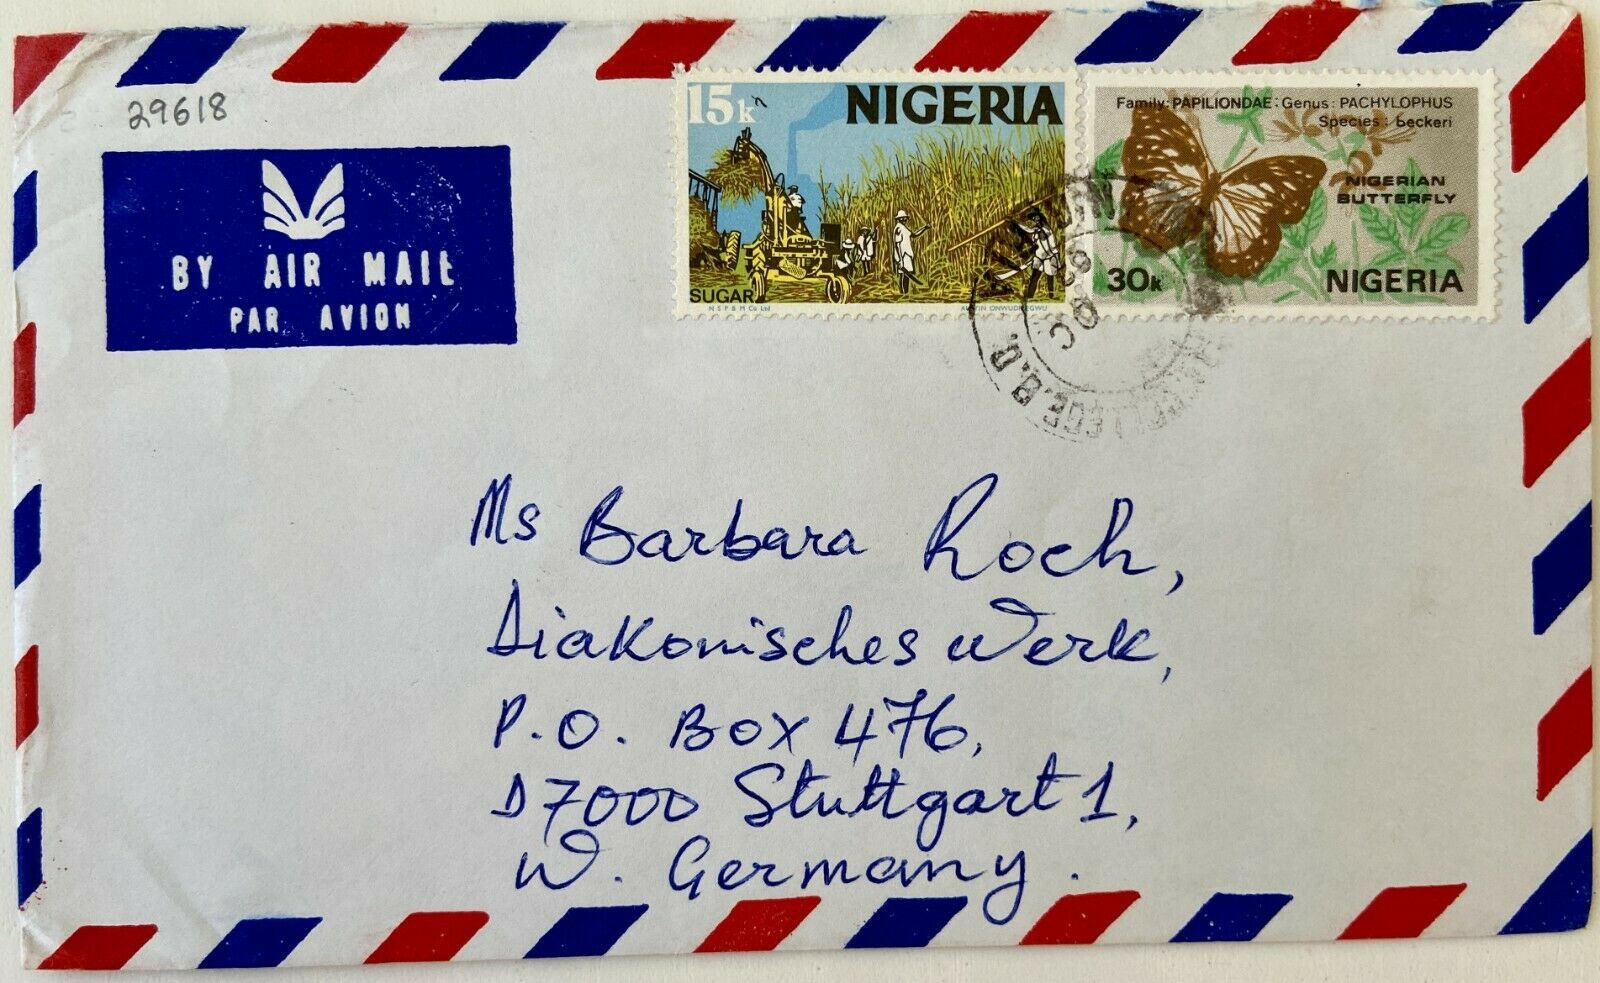 29618
BY AIR MAIL
PAR AVION
15k
NIGERIA
SUGAR
N S P & M Co Ltd
Family: PAPILIONDAE: Genus: PACHYLOPHUS
Species: beckeri
NIGERIAN
BUTTERFLY
30k
NIGERIA
Ms Barbara Roch,
Diakonisches Werk,
P.O. BOX 476,
D7000 Stuttgart 1,
W. Germany.